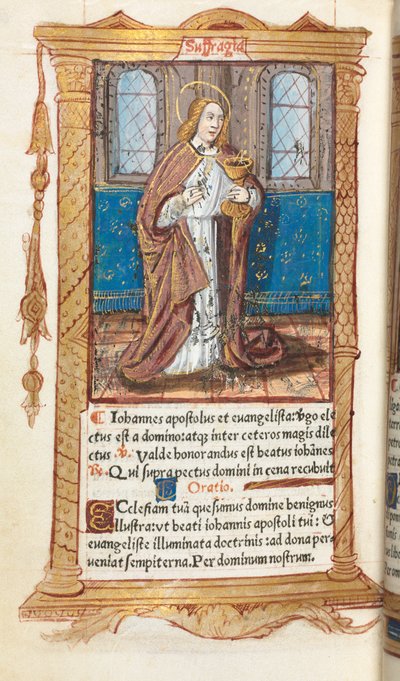 Suffragia
C Iohannes apostolus et euangelista: Vgo ele
ctus est a domino: atqȝ inter ceteros magis dile
ctus ℣. Valde honorandus est beatus iohãnes
℟. Qui supra pectus domini in cena recubuit
C Oratio.
ECclesiam tuã quesumus domine benignus
illustra: vt beati iohannis apostoli tui: &
euangeliste illuminata doctrinis: ad dona per-
ueniat sempiterna. Per dominum nostrum.